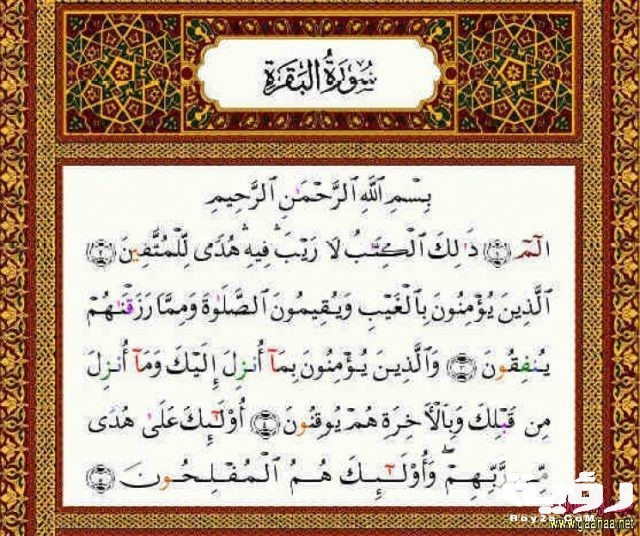 سُورَةُ البَقَرَةِ
بِسْمِ ٱللَّهِ ٱلرَّحْمَٰنِ ٱلرَّحِيمِ
الٓمٓ ﴿١﴾ ذَٰلِكَ ٱلْكِتَٰبُ لَا رَيْبَ ۛ فِيهِ ۛ هُدًى لِّلْمُتَّقِينَ ﴿٢﴾
ٱلَّذِينَ يُؤْمِنُونَ بِٱلْغَيْبِ وَيُقِيمُونَ ٱلصَّلَوٰةَ وَمِمَّا رَزَقْنَٰهُمْ
يُنفِقُونَ ﴿٣﴾ وَٱلَّذِينَ يُؤْمِنُونَ بِمَآ أُنزِلَ إِلَيْكَ وَمَآ أُنزِلَ
مِن قَبْلِكَ وَبِٱلْأَخِرَةِ هُمْ يُوقِنُونَ ﴿٤﴾ أُوْلَٰٓئِكَ عَلَىٰ هُدًى
مِّن رَّبِّهِمْ ۖ وَأُوْلَٰٓئِكَ هُمُ ٱلْمُفْلِحُونَ ﴿٥﴾
رؤية
Roy2a.CoM
www.gaanaa.net